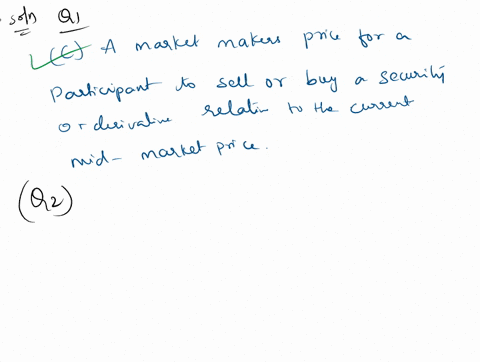 soln Q1
(C) A market makers price for a
participant to sell or buy a security
or derivative relatin to the current
mid-market price.
(Q2)